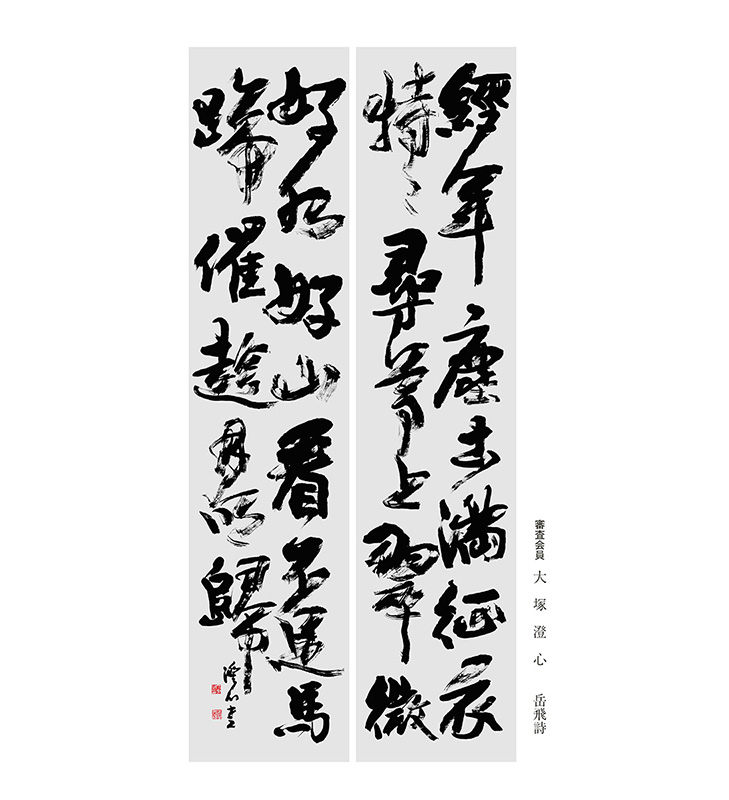 經年塵土滿征衣
特〻尋芳上翠微
好水好山看不足馬
蹄催趁月明歸
澄心書
審査会員 大塚澄心 岳飛詩